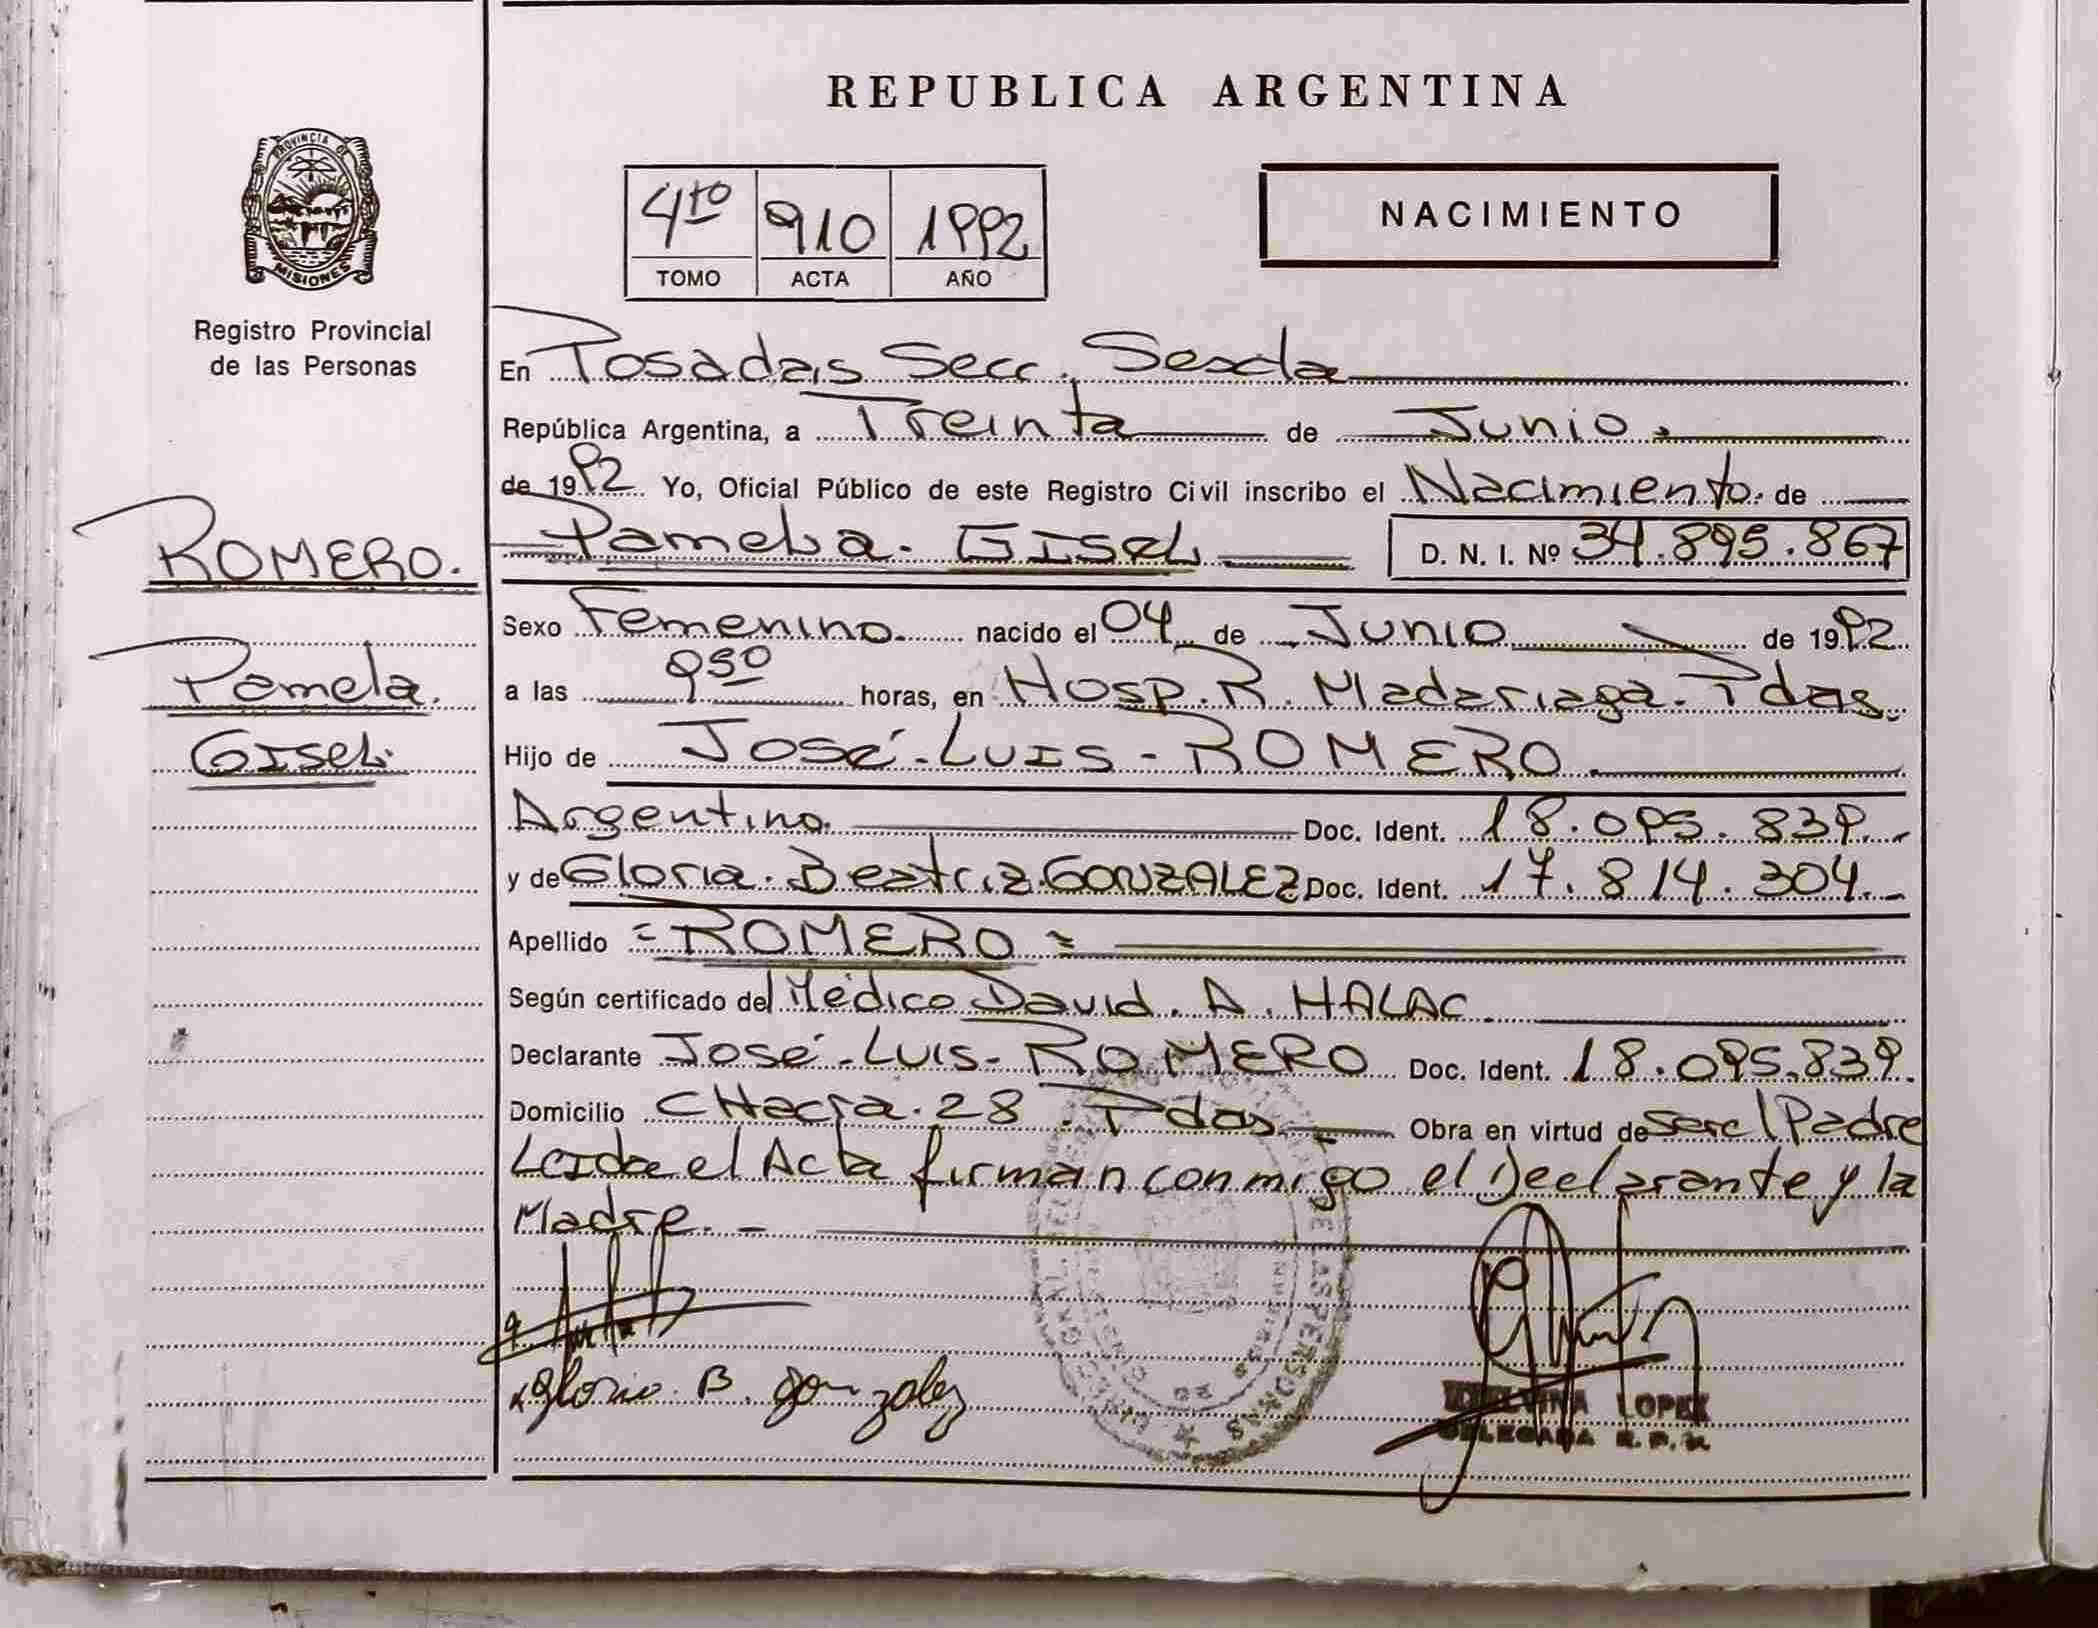 REPUBLICA ARGENTINA
PROVINCIA DE
MISIONES
Registro Provincial
de las Personas
4to 910 1992
TOMO ACTA AÑO
NACIMIENTO
En Posadas Secc. Sexta
República Argentina, a Treinta de Junio.
de 1992 Yo, Oficial Público de este Registro Civil inscribo el Nacimiento. de
Pamela. Gisel D. N. I. Nº 34.895.867
ROMERO.
Pamela.
Gisel.
Sexo Femenino. nacido el 04 de Junio de 1992
a las 9 50 horas, en Hosp. R. Madariaga. Pdas.
Hijo de José-Luis-ROMERO.
Argentino. Doc. Ident. 18.095.839.
y de Gloria. Beatriz. GONZALEZ Doc. Ident. 17.814.304.
Apellido = ROMERO =
Según certificado del Médico David. A. HALAC.
Declarante José-Luis-ROMERO Doc. Ident. 18.095.839.
Domicilio CHacra. 28. Pdas. Obra en virtud de ser el Padre
Leida el Acta firman conmigo el Declarante y la
Madre.
Gloria. B. Gonzalez
LOPEZ
DELEGADA